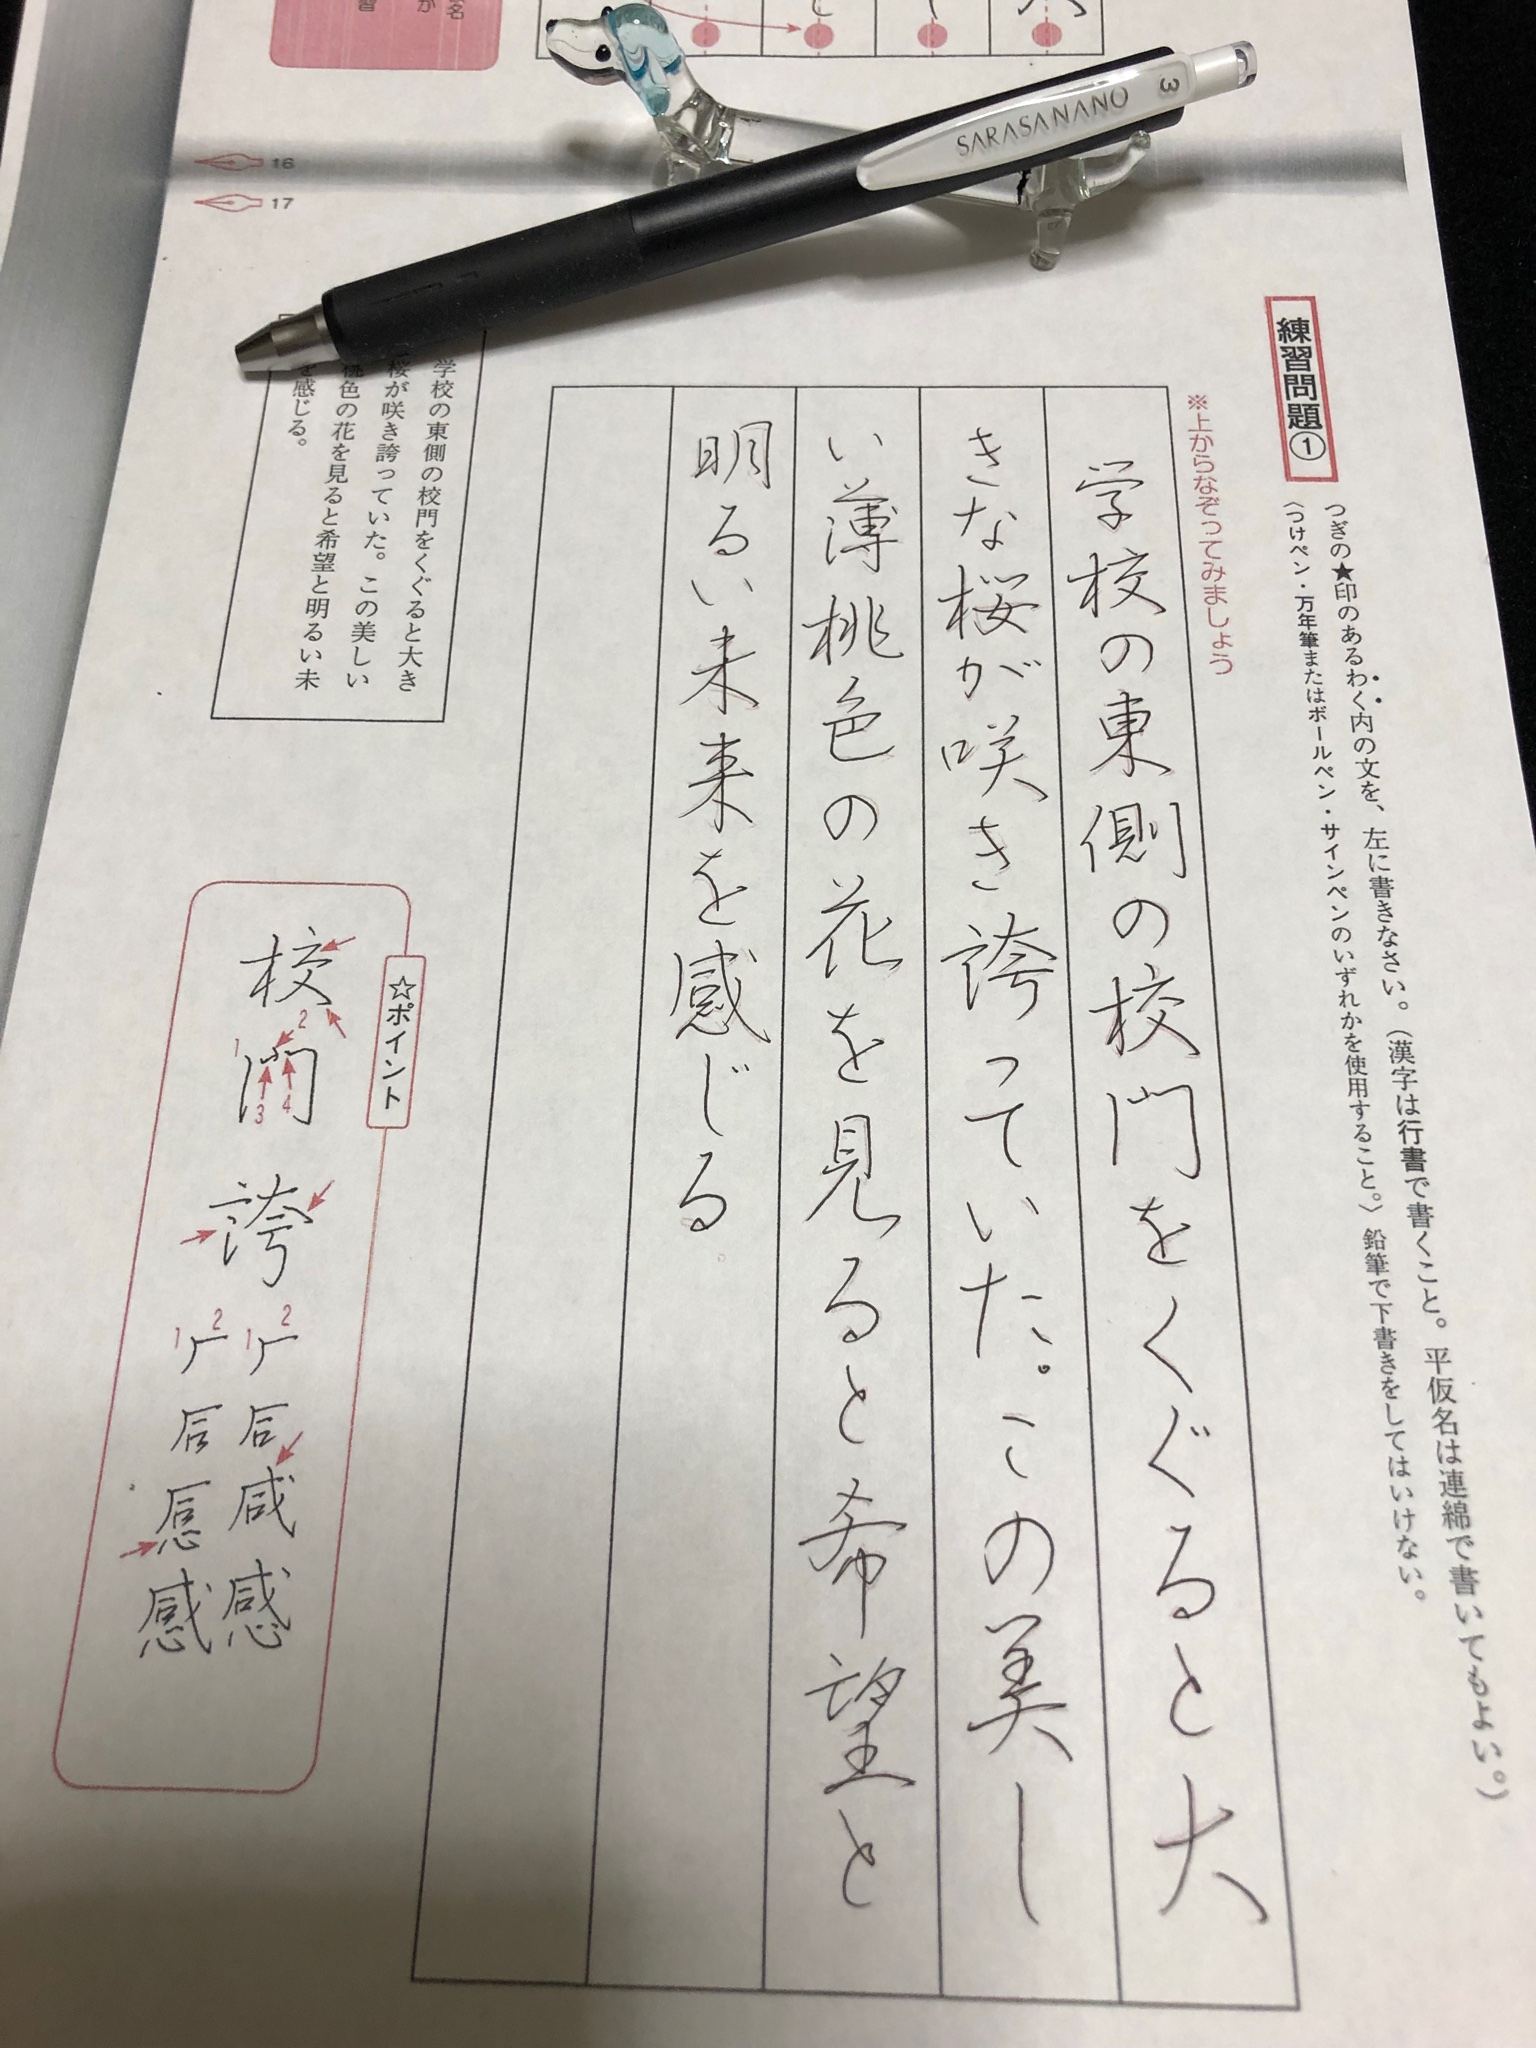 SARASA NANO 3
16
17
練習問題①
つぎの★印のあるわく内の文を、左に書きなさい。(漢字は行書で書くこと。平仮名は連綿で書いてもよい。)
〈つけペン・万年筆またはボールペン・サインペンのいずれかを使用すること。〉鉛筆で下書きをしてはいけない。
※上からなぞってみましょう
学校の東側の校門をくぐると大
きな桜が咲き誇っていた。この美し
い薄桃色の花を見ると希望と
明るい未来を感じる
学校の東側の校門をくぐると大き
桜が咲き誇っていた。この美しい
桃色の花を見ると希望と明るい未
を感じる。
☆ポイント
校
門
1
2
3
4
誇
1
2
感
感
1
2
感